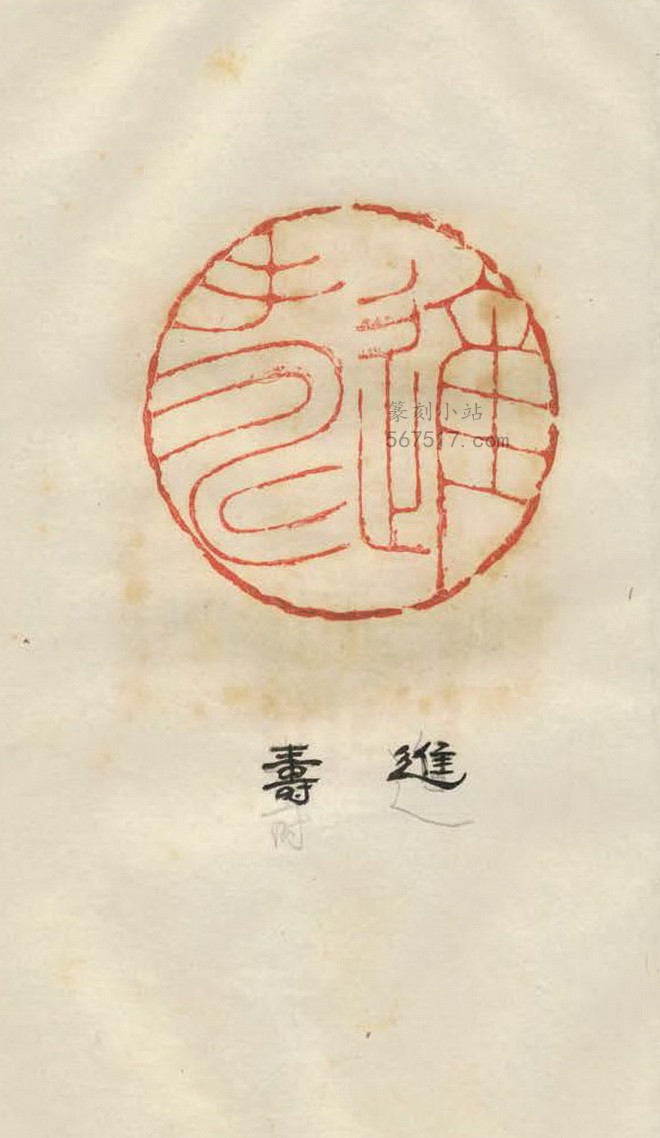 篆刻小站
567517.com
進壽